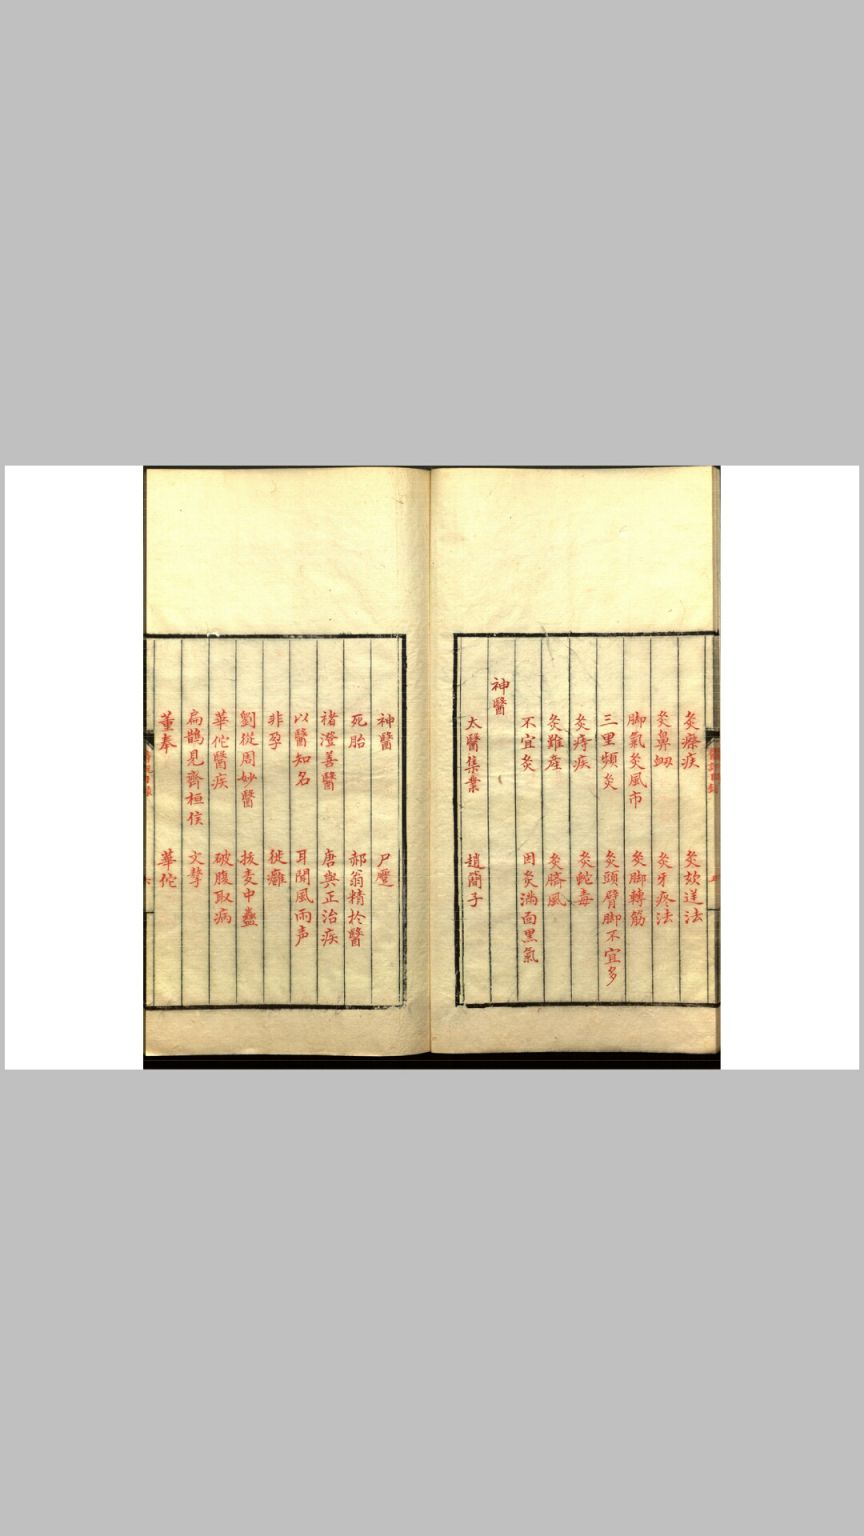 灸瘵疾 灸欬逆法
灸鼻衄 灸牙疼法
脚氣灸風市 灸脚轉筋
三里頻灸 灸頭臂脚不宜多
灸痔疾 灸蛇毒
灸難産 灸臍風
不宜灸 因灸滿面黑氣
神醫
太醫集業 趙簡子
神醫 尸蹷
死胎 郝翁精於醫
褚澄善醫 唐與正治疾
以醫知名 耳聞風雨声
非孕 徙癰
劉從周妙醫 援麦中蠱
華佗醫疾 破腹取病
扁鵲見齊桓侯 文摯
董奉 華佗